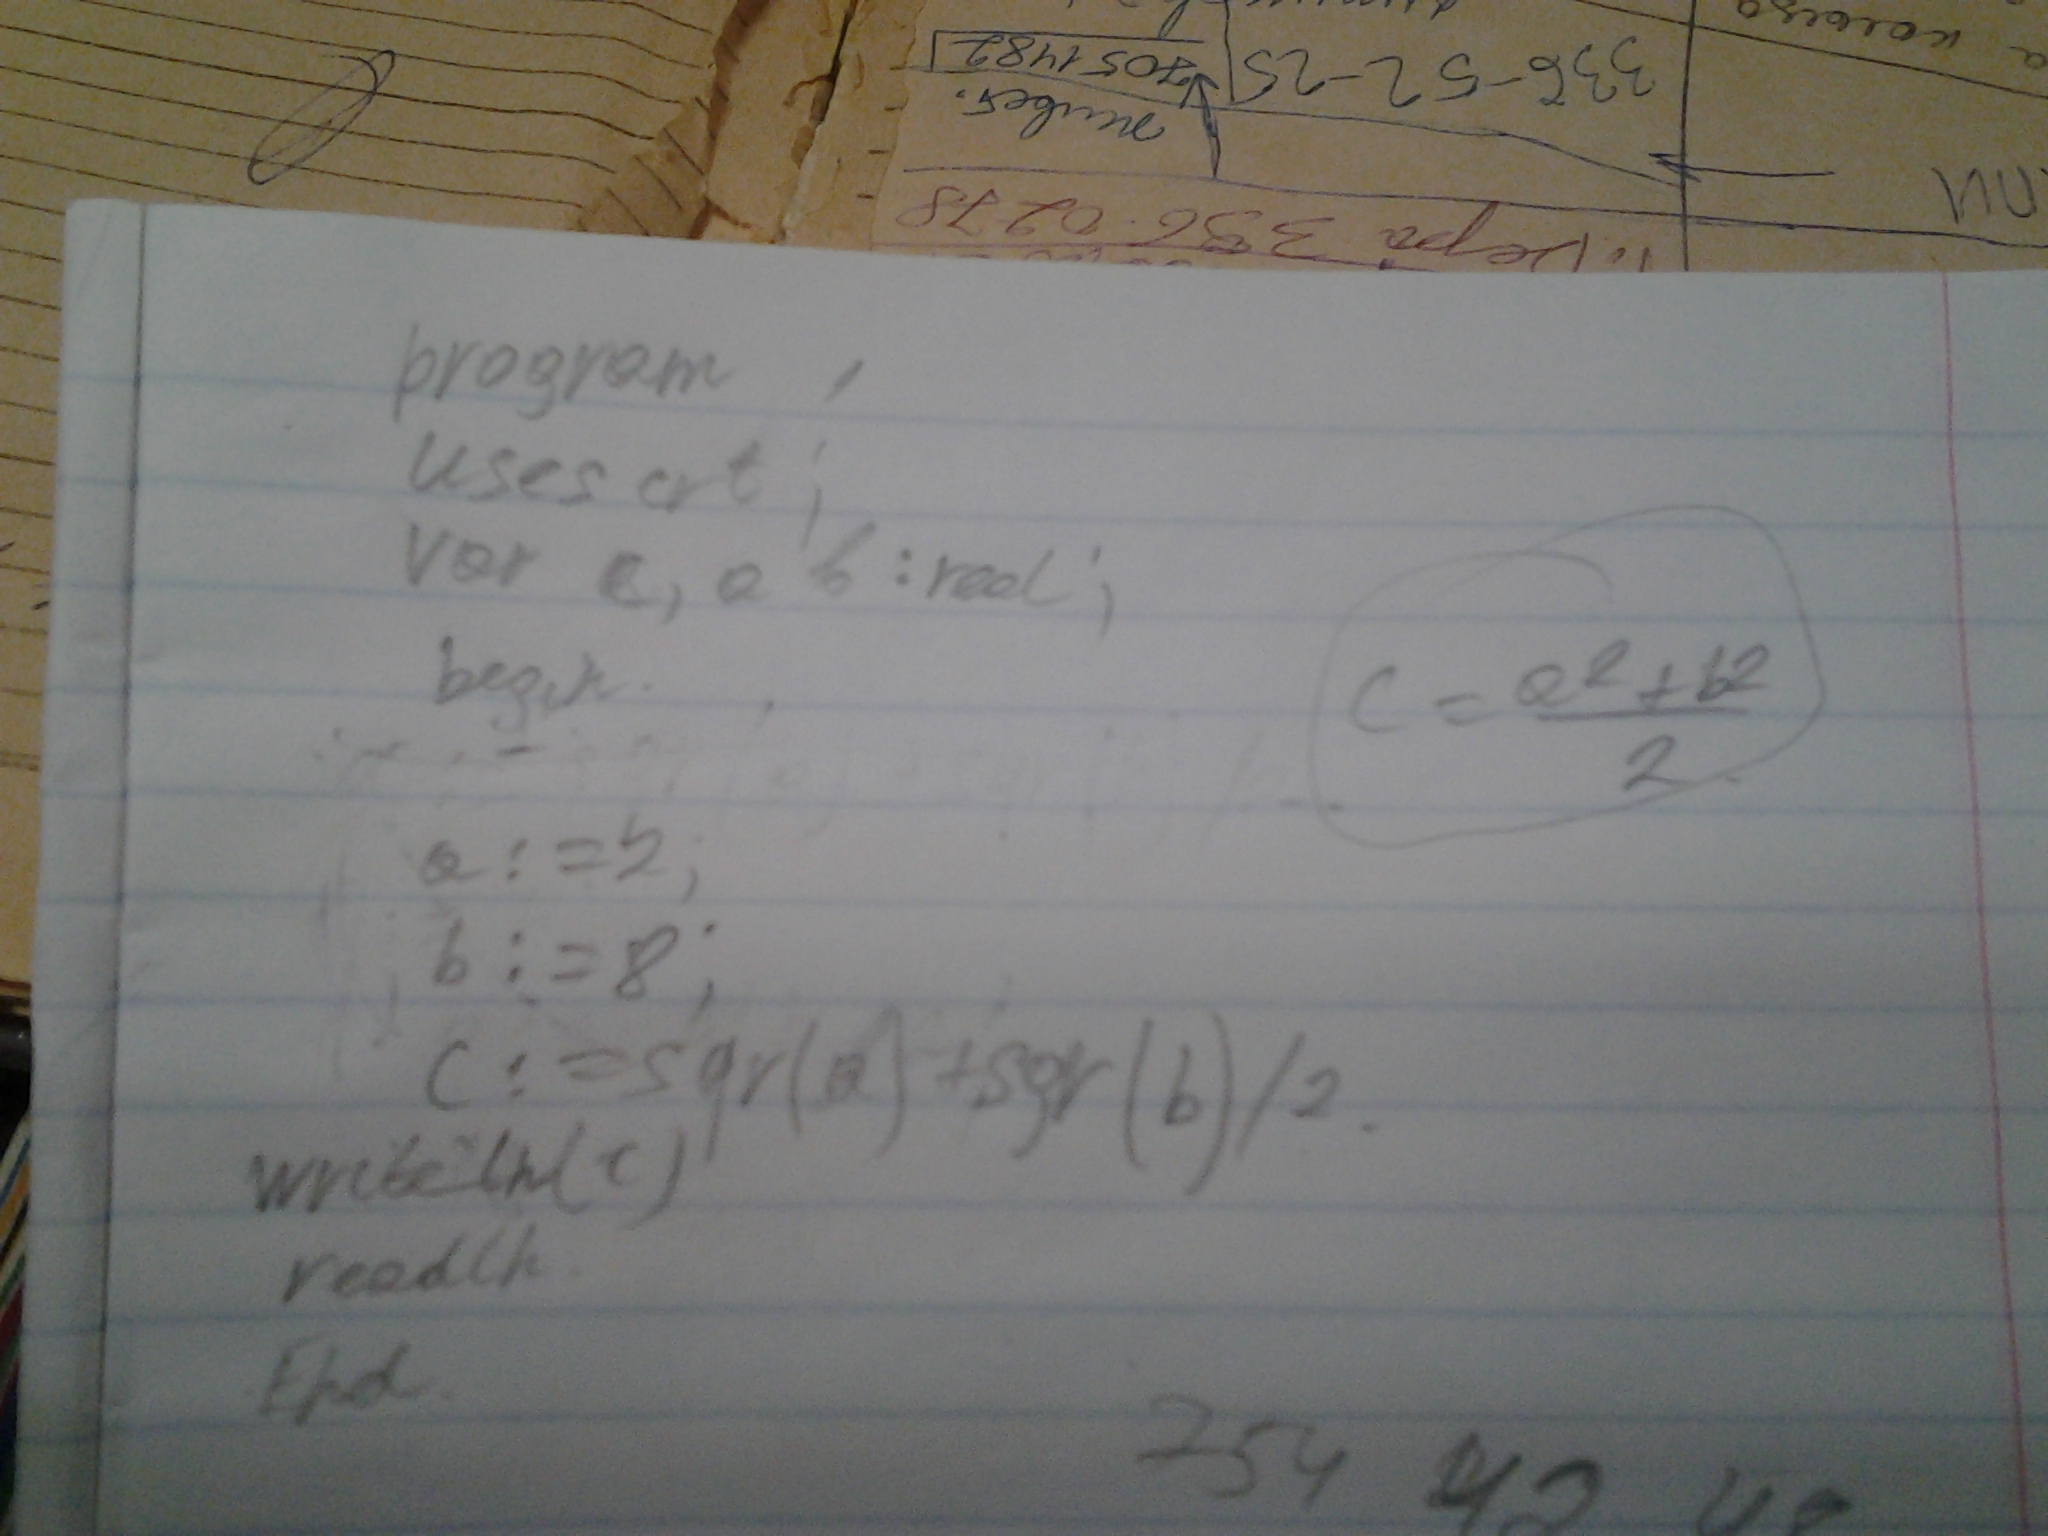 336-52-25
7051482
number.
1. Вера 336.02.78
program ;
uses crt;
var c, a b : real;
begin.
a := 5;
b := 8;
c := sqr(a) + sqr(b)/2.
writeln(c)
readln.
End.
C = a2 + b2
2
254 42